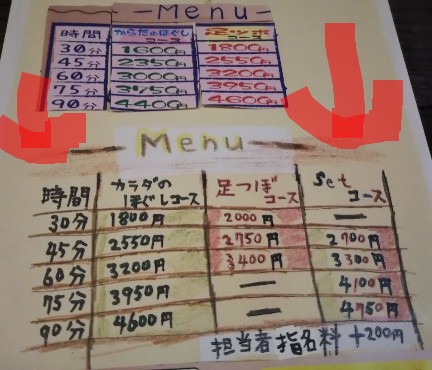 Menu
時間 からだのほぐしコース 足ツボコース
30分 1600円 1800円
45分 2350円 2550円
60分 3000円 3200円
75分 3750円 3950円
90分 4400円 4600円
Menu
時間 カラダのほぐしコース 足つぼコース Setコース
30分 1800円 2000円 ー
45分 2550円 2750円 2900円
60分 3200円 3400円 3300円
75分 3950円 ー 4100円
90分 4600円 ー 4750円
担当者指名料 +200円